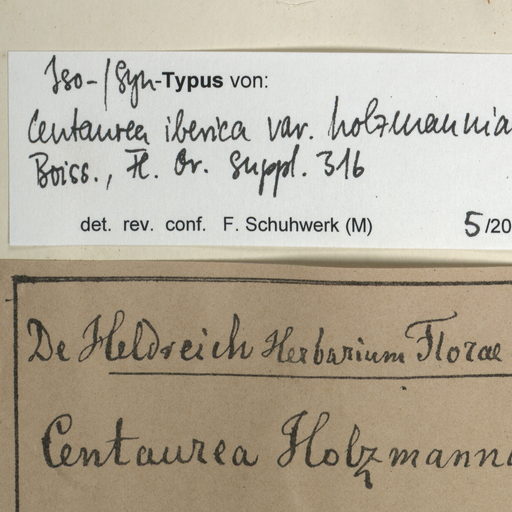 Iso-/Syn-Typus von:
Centaurea iberica var. holzmannia
Boiss., Fl. Or. Suppl. 316
det. rev. conf. F. Schuhwerk (M) 5/20
De Heldreich Herbarium Florae
Centaurea Holzmann